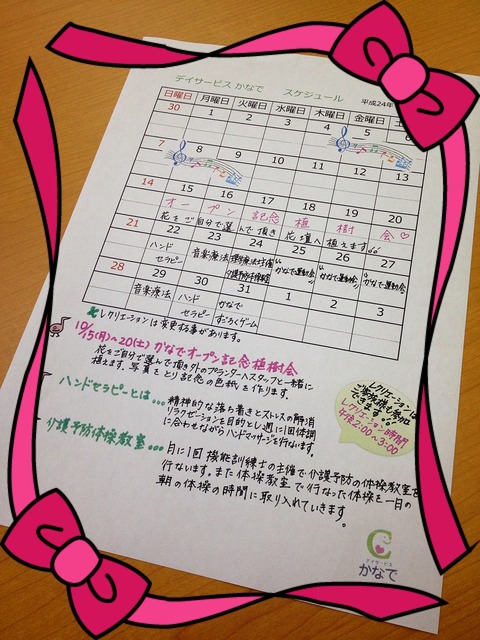 デイサービス かなで　スケジュール　平成24年
日曜日 月曜日 火曜日 水曜日 木曜日 金曜日 土
30 1 2 3 4 5 6
7 8 9 10 11 12 13
14 15 16 17 18 19 20
オープン記念植樹会♡
花をご自分で選んで頂き 花壇へ植えます。
21 22 23 24 25 26 27
ハンドセラピー 音楽療法 介護予防体操教室 "かなで運動会" "かなで運動会" "かなで運動会"
28 29 30 31 1 2 3
音楽療法 ハンドセラピー かなで すごろくゲーム
レクリエーションは変更する事があります。
10/15(月)~20(土) かなでオープン記念植樹会
花をご自分で選んで頂き外のプランターへスタッフと一緒に
植えます。写真をとり記念の色紙を作ります。
ハンドセラピーとは... 精神的な落ち着きとストレスの解消
リラクゼーションを目的とし週に1回体調
に合わせながらハンドマッサージを行ないます。
レクリエーション
ご家族様も参加
できます!!
レクリエーション時間
午後2:00~3:00
介護予防体操教室... 月に1回機能訓練士の主催で介護予防の体操教室を
行ないます。また体操教室で行なった体操を一日の
朝の体操の時間に取り入れていきます。
デイサービス
かなで